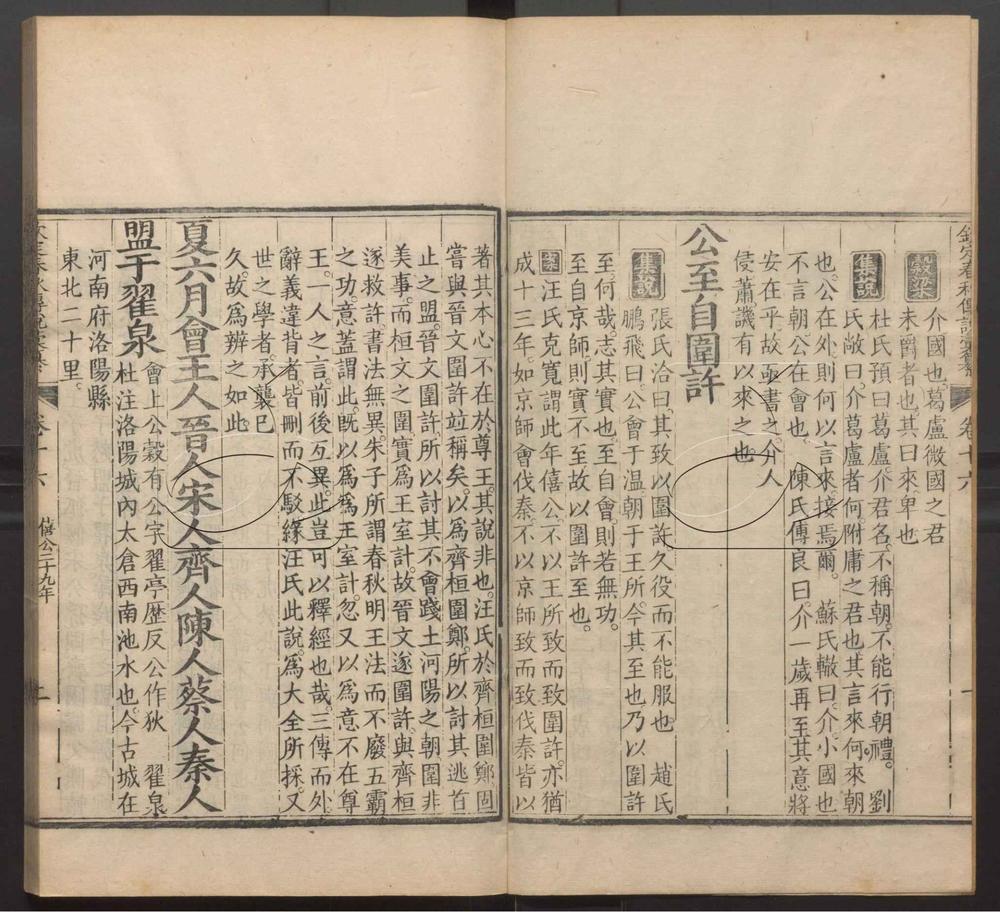 欽定春秋傳說彙纂 卷十六 一
穀梁 介國也葛盧微國之君
未爵者也其曰來卑也
集說 杜氏預曰葛盧介君名不稱朝不能行朝禮。劉
氏敞曰介葛盧者何附庸之君也其言來何來朝
也公在外則何以言來接焉爾。 蘇氏轍曰介小國也
不言朝公在會也。 陳氏傅良曰介一歲再至其意將
安在乎故亟書之介人
侵蕭譏有以來之也
公至自圍許
集說 張氏洽曰其致以圍許久役而不能服也 趙氏
鵬飛曰公會于温朝于王所今其至也乃以圍許
至何哉志其實也至自會則若無功。
至自京師則實不至故以圍許至也。
案 汪氏克寬謂此年僖公不以王所致而致圍許亦猶
成十三年如京師會伐秦不以京師致而致伐秦皆以
著其本心不在於尊王其說非也汪氏於齊桓圍鄭固
嘗與晉文圍許竝稱矣以為齊桓圍鄭所以討其逃首
止之盟晉文圍許所以討其不會踐土河陽之朝圍非
美事而桓文之圍實為王室計故晉文遂圍許與齊桓
遂救許書法無異朱子所謂春秋明王法而不廢五霸
之功意蓋謂此既以為為王室計忽又以為意不在尊
王一人之言前後互異此豈可以釋經也哉三傳而外
辭義違背者皆刪而不駁緣汪氏此說為大全所採又
世之學者承襲已
久故為辨之如此
夏六月會王人晉人宋人齊人陳人蔡人秦人
盟于翟泉 會上公穀有公字翟亭歷反公作狄 翟泉
杜注洛陽城內太倉西南池水也今古城在
河南府洛陽縣
東北二十里。
卷十六 僖公二十九年 一